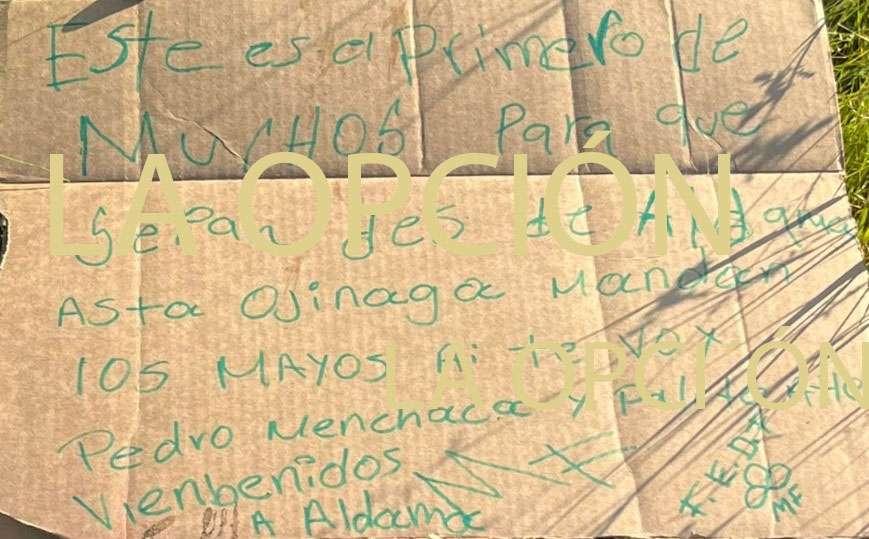 Este es el primero de
MucHOS Para que
Sepan des de Aldama
Asta Ojinaga Mandan
los MAYOS Ai te voy
Pedro Menchaca y
Vienbenidos MF
A Aldama
F.E.D.T
MF
LA OPCIÓN
LA OPCIÓN